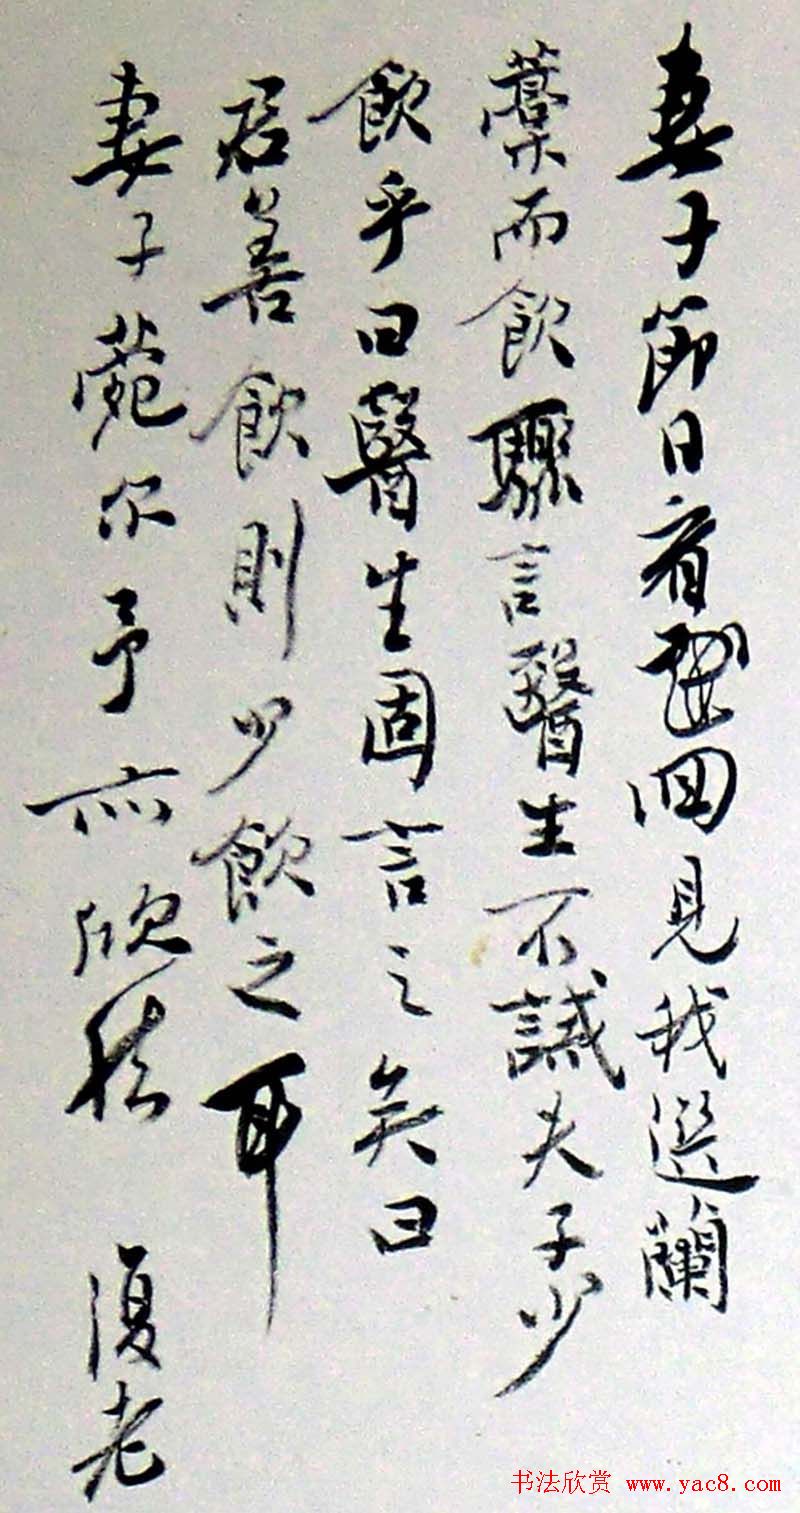 妻子節日看歸見我選蘭
藁而飲驟言醫生不誡夫子少
飲乎曰醫生固言之矣曰
君善飲則少飲之耳
妻子菀尔予亦欣然
復老
书法欣赏 www.yac8.com